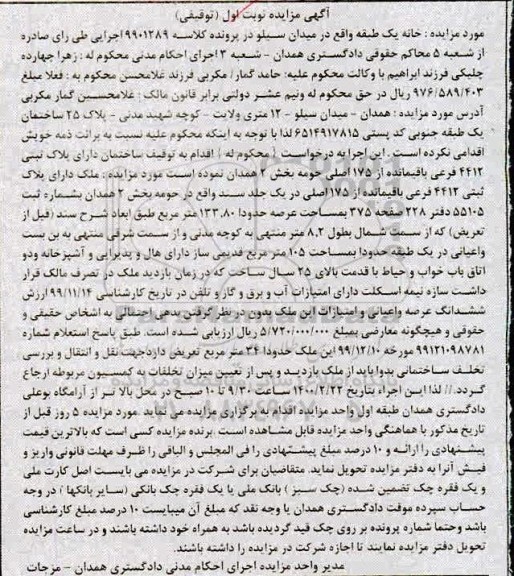 آگهی مزایده نوبت اول (توقیفی)
مورد مزایده : خانه یک طبقه واقع در میدان سیلو در پرونده کلاسه ۹۹۰۱۲۸۹ اجرایی طی رای صادره
از شعبه ۵ محاکم حقوقی دادگستری همدان - شعبه ۳ اجرای احکام مدنی محکوم له : زهرا چهارده
چلیکی فرزند ابراهیم با وکالت محکوم علیه: حامد گمار/ مکربی فرزند غلامحسن محکوم به : فعلا مبلغ
۹۷۶/۵۸۹/۴۰۳ ریال در حق محکوم له ونیم عشر دولتی برابر قانون مالک : غلامحسین گمار مکربی
آدرس مورد مزایده : همدان - میدان سیلو - ۱۲ متری ولایت - کوچه شهید مدنی - پلاک ۲۵ ساختمان
یک طبقه جنوبی کد پستی ۶۵۱۴۹۱۷۸۱۵ لذا با توجه به اینکه محکوم علیه نسبت به برائت ذمه خویش
اقدامی نکرده است . این اجرا به درخواست ( محکوم له ) اقدام به توقیف ساختمان دارای پلاک ثبتی
۴۴۱۲ فرعی باقیمانده از ۱۷۵ اصلی حومه بخش ۲ همدان نموده است مورد مزایده : ملک دارای پلاک
ثبتی ۴۴۱۲ فرعی باقیمانده از ۱۷۵ اصلی در یک جلد سند واقع در حومه بخش ۲ همدان بشماره ثبت
۵۵۱۰۵ دفتر ۲۲۸ صفحه ۳۷۵ بمساحت عرصه حدودا ۱۳۳.۸۰ متر مربع طبق ابعاد شرح سند (قبل از
تعریض) که از سمت شمال بطول ۸.۲ متر منتهی به کوچه مدنی و از سمت شرقی منتهی به بن بست
واعیانی در یک طبقه حدودا بمساحت ۱۰۵ متر مربع قدیمی ساز دارای هال و پذیرایی و آشپزخانه ودو
اتاق یاب خواب و حیاط با قدمت بالای ۲۵ سال ساخت که در زمان بازدید ملک در تصرف مالک قرار
داشت سازه نیمه اسکلت دارای امتیازات آب و برق و گاز و تلفن در تاریخ کارشناسی ۹۹/۱۱/۱۴ ارزش
ششدانگ عرصه واعیانی و امتیازات این ملک بدون در نظر گرفتن بدهی احتمالی به اشخاص حقیقی و
حقوقی و هیچگونه معارضی بمبلغ ۵/۷۲۰/۰۰۰/۰۰۰ ریال ارزیابی شده است. طبق پاسخ استعلام شماره
۹۹۱۲۱۰۹۸۷۸۱ مورخه ۹۹/۱۲/۱۰ این ملک حدودا ۳۴ متر مربع تعریض داردجهت نقل و انتقال و بررسی
تخلف ساختمانی بدوا باید از ملک بازدید و پس از تعیین میزان تخلفات به کمسیون مربوطه ارجاع
گردد.// لذا این اجراء بتاریخ ۱۴۰۰/۲/۲۲ ساعت ۹/۳۰ تا ۱۰ صبح در محل بالا تر از آرامگاه بوعلی
دادگستری همدان طبقه اول واحد مزایده اقدام به برگزاری مزایده می نماید .مورد مزایده ۵ روز قبل از
تاریخ مذکور با هماهنگی واحد مزایده قابل مشاهده است. برنده مزایده کسی است که بالاترین قیمت
پیشنهادی را ارائه و ۱۰ درصد مبلغ پیشنهادی را فی المجلس و الباقی را ظرف مهلت قانونی واریز و
فیش آنرا به دفتر مزایده تحویل نماید. متقاضیان برای شرکت در مزایده می بایست اصل کارت ملی
و یک فقره چک تضمین شده (چک سبز ) بانک ملی یا یک فقره چک بانکی (سایر بانکها ) در وجه
حساب سپرده موقت دادگستری همدان یا وجه نقد که مبلغ آن میبایست ۱۰ درصد مبلغ کارشناسی
باشد وحتما شماره پرونده بر روی چک قید گردیده باشد به همراه خود داشته باشند و در ساعت مزایده
تحویل دفتر مزایده نمایند تا اجازه شرکت در مزایده را داشته باشند.
مدیر واحد مزایده اجرای احکام مدنی دادگستری همدان - مزجات